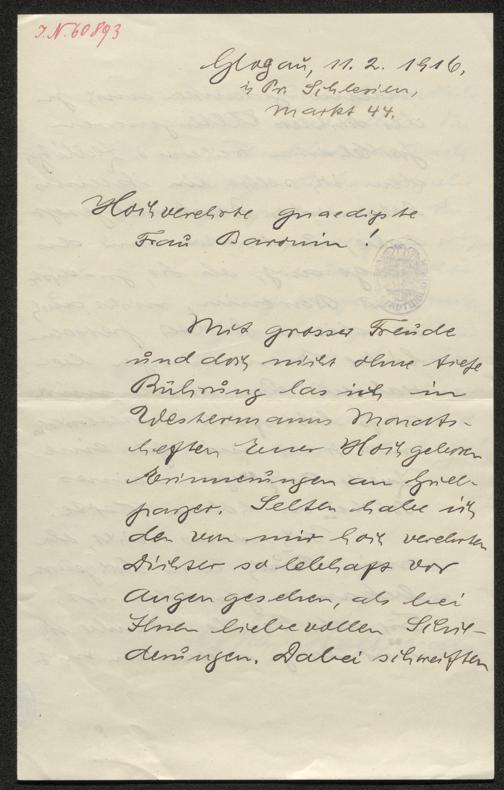 I.N. 60893
Glogau, 11. 2. 1916,
i/ Pr. Schlesien,
Markt 44.
Hochverehrte gnaedigste
Frau Baronin!
Mit grosser Freude
und doch nicht ohne tiefe
Rührung las ich in
Westermanns Monats-
heften Euer Hochgeboren
Erinnerungen an Grill-
parzer. Selten habe ich
den von mir hoch verehrten
Dichter so lebhaft vor
Augen gesehen, als bei
Ihren liebevollen Schil-
derungen. Dabei schweiften